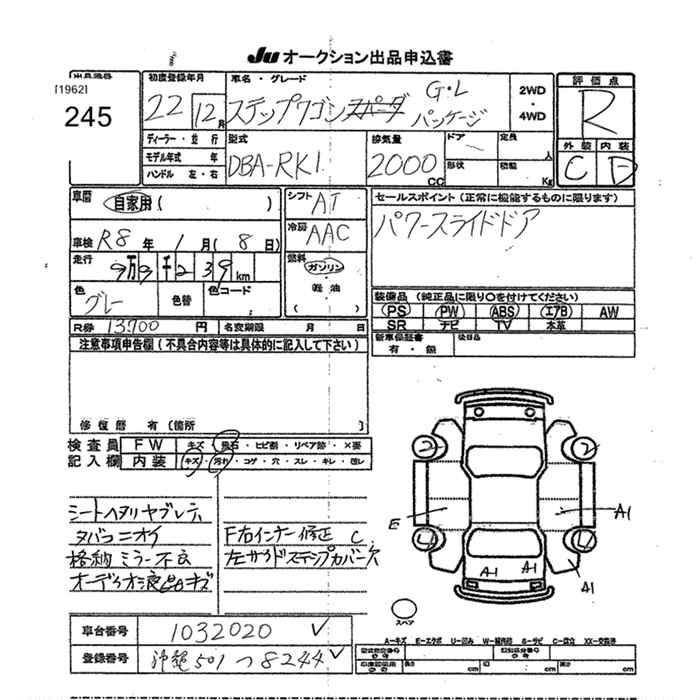 JU オークション出品申込書
[1962]
245
初度登録年月
22 12月
車名・グレード
ステップワゴン スパーダ G・L パッケージ
2WD
・
4WD
評価点
R
外装 内装
C D
ディーラー・並行
モデル年式 年
ハンドル 左・右
型式
DBA-RK1
排気量
2000 CC
ドア
形状
定員 人
積載 Kg
車歴 自家用 ( )
シフト AT
セールスポイント (正常に機能するものに限ります)
パワースライドドア
車検 R8 年 1 月 ( 8 日)
冷房 AAC
走行 9万9千239 km
燃料 ガソリン
・
軽油
( )
色 グレー
色替
色コード
装備品 (純正品に限り○を付けてください)
PS PW ABS エアB AW
SR ナビ TV 本革
R券 13700 円 名変期限 月 日
新車保証書
有・無
後日品
注意事項申告欄 (不具合内容等は具体的に記入して下さい)
修復歴 有 (箇所 )
検査員 FW キズ・飛石・ヒビ割・リペア跡・×要
記入欄 内装 キズ・汚れ・コゲ・穴・スレ・キレ・復レ
シートヘタリヤブレ
タバコニオイ
格納ミラー不良
オーディオ液晶キズ
F右インナー修正 C
左サイドステップカバー欠
2 2
E A1
A1 A1
A1
スペア
車台番号 1032020
登録番号 沖縄 501 つ 8244
A-キズ E-エクボ U-凹み S-サビ C-腐食 XX-交換済